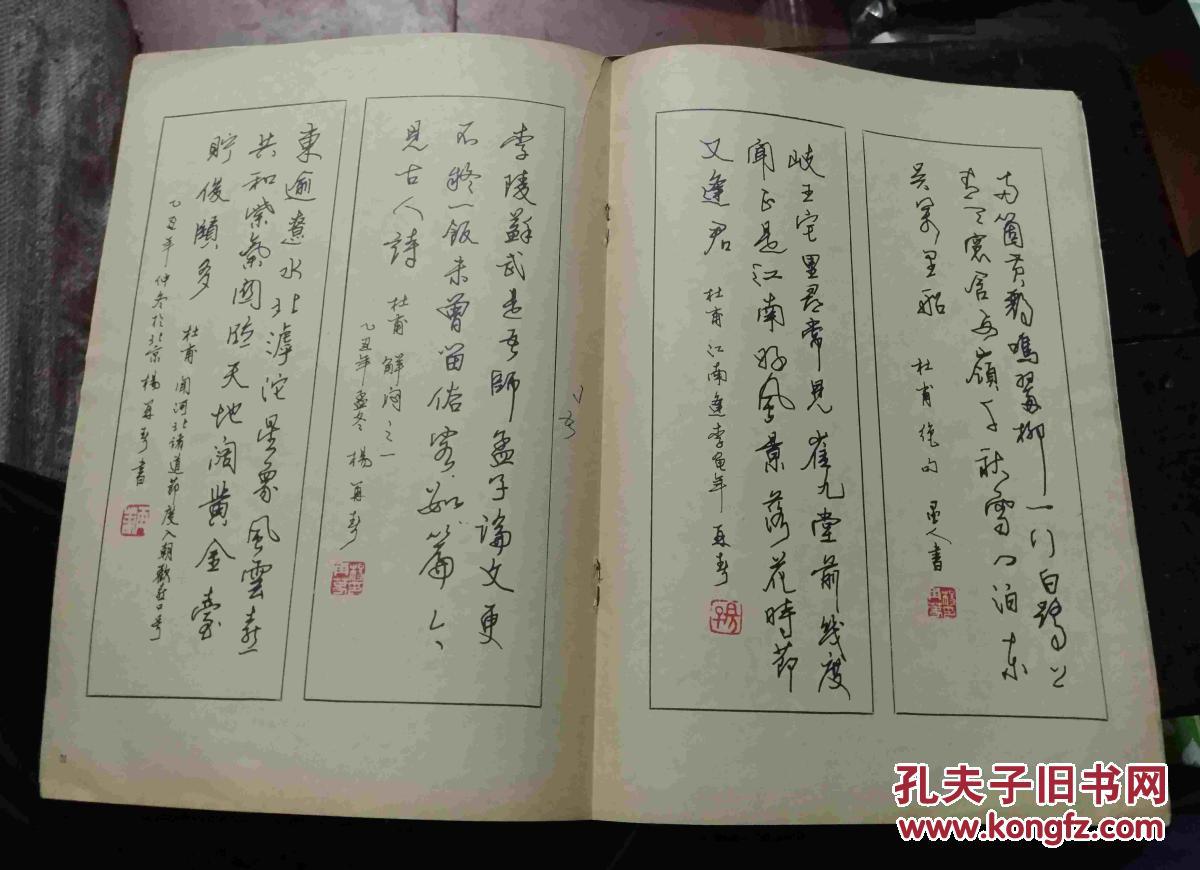 兩箇黄鹂鳴翠柳一行白鹭上
青天窗含西嶺千秋雪门泊东
吴萬里船 杜甫絶句
岐王宅里尋常見崔九堂前幾度
聞正是江南好風景落花時節
又逢君 杜甫江南逢李龟年 再春
李陵蘇武是吾師孟子論文更
不疑一飯未曾留俗客数篇今
見古人詩 杜甫解闷之一
乙丑年孟冬 楊再春
東逾遼水北滹沱星象風雲喜
共和紫氣関临天地阔黄金臺
貯俊賢多 杜甫 闻河北諸道節度入朝歡喜口號
乙丑年仲冬於北京楊再春書
孔夫子旧书网
www.kongfz.com